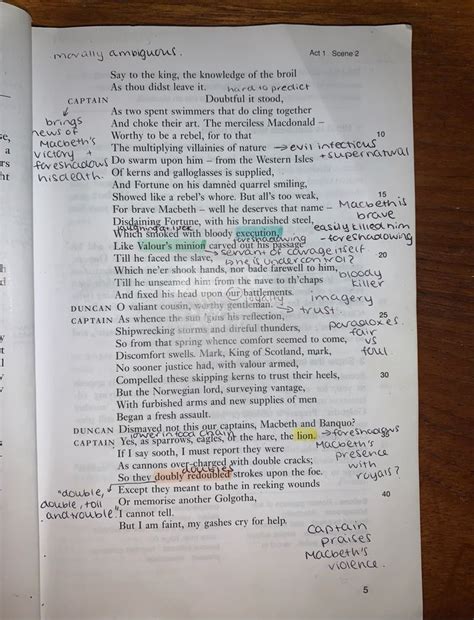 morally ambiguous.
Act 1 Scene 2
Say to the king, the knowledge of the broil
As thou didst leave it.
hard to predict
CAPTAIN Doubtful it stood,
As two spent swimmers that do cling together
And choke their art. The merciless Macdonald –
Worthy to be a rebel, for to that 10
The multiplying villainies of nature → evil infectious
+ supernatural
Do swarm upon him – from the Western Isles
Of kerns and galloglasses is supplied,
And Fortune on his damnèd quarrel smiling,
Showed like a rebel's whore. But all's too weak, 15
For brave Macbeth – well he deserves that name –
Disdaining Fortune, with his brandished steel,
Which smoked with bloody execution,
Like Valour's minion carved out his passage
Till he faced the slave, 20
Which ne'er shook hands, nor bade farewell to him,
Till he unseamed him from the nave to th'chaps
And fixed his head upon our battlements.
DUNCAN O valiant cousin, worthy gentleman.
CAPTAIN As whence the sun 'gins his reflection, 25
Shipwrecking storms and direful thunders,
So from that spring whence comfort seemed to come,
Discomfort swells. Mark, King of Scotland, mark,
No sooner justice had, with valour armed,
Compelled these skipping kerns to trust their heels, 30
But the Norwegian lord, surveying vantage,
With furbished arms and new supplies of men
Began a fresh assault.
DUNCAN Dismayed not this our captains, Macbeth and Banquo?
CAPTAIN Yes, as sparrows, eagles, or the hare, the lion.
If I say sooth, I must report they were
As cannons over-charged with double cracks;
So they doubly redoubled strokes upon the foe.
Except they meant to bathe in reeking wounds
Or memorise another Golgotha, 40
I cannot tell.
But I am faint, my gashes cry for help.
brings
news of
Macbeth's
victory +
foreshadows
his death.
Macbeth is
brave
easily killed him
- foreshadowing
foreshadowing
→ servant of courage itself
→ he is under control?
bloody
killer
loyalty
imagery
→ trust.
paradoxes.
fair
vs
foul
lower in food chain
→ foreshadows
Macbeth's
presence
with
royals?
doubles
"double,
double, toil
and trouble"
Captain
praises
Macbeth's
violence.
5